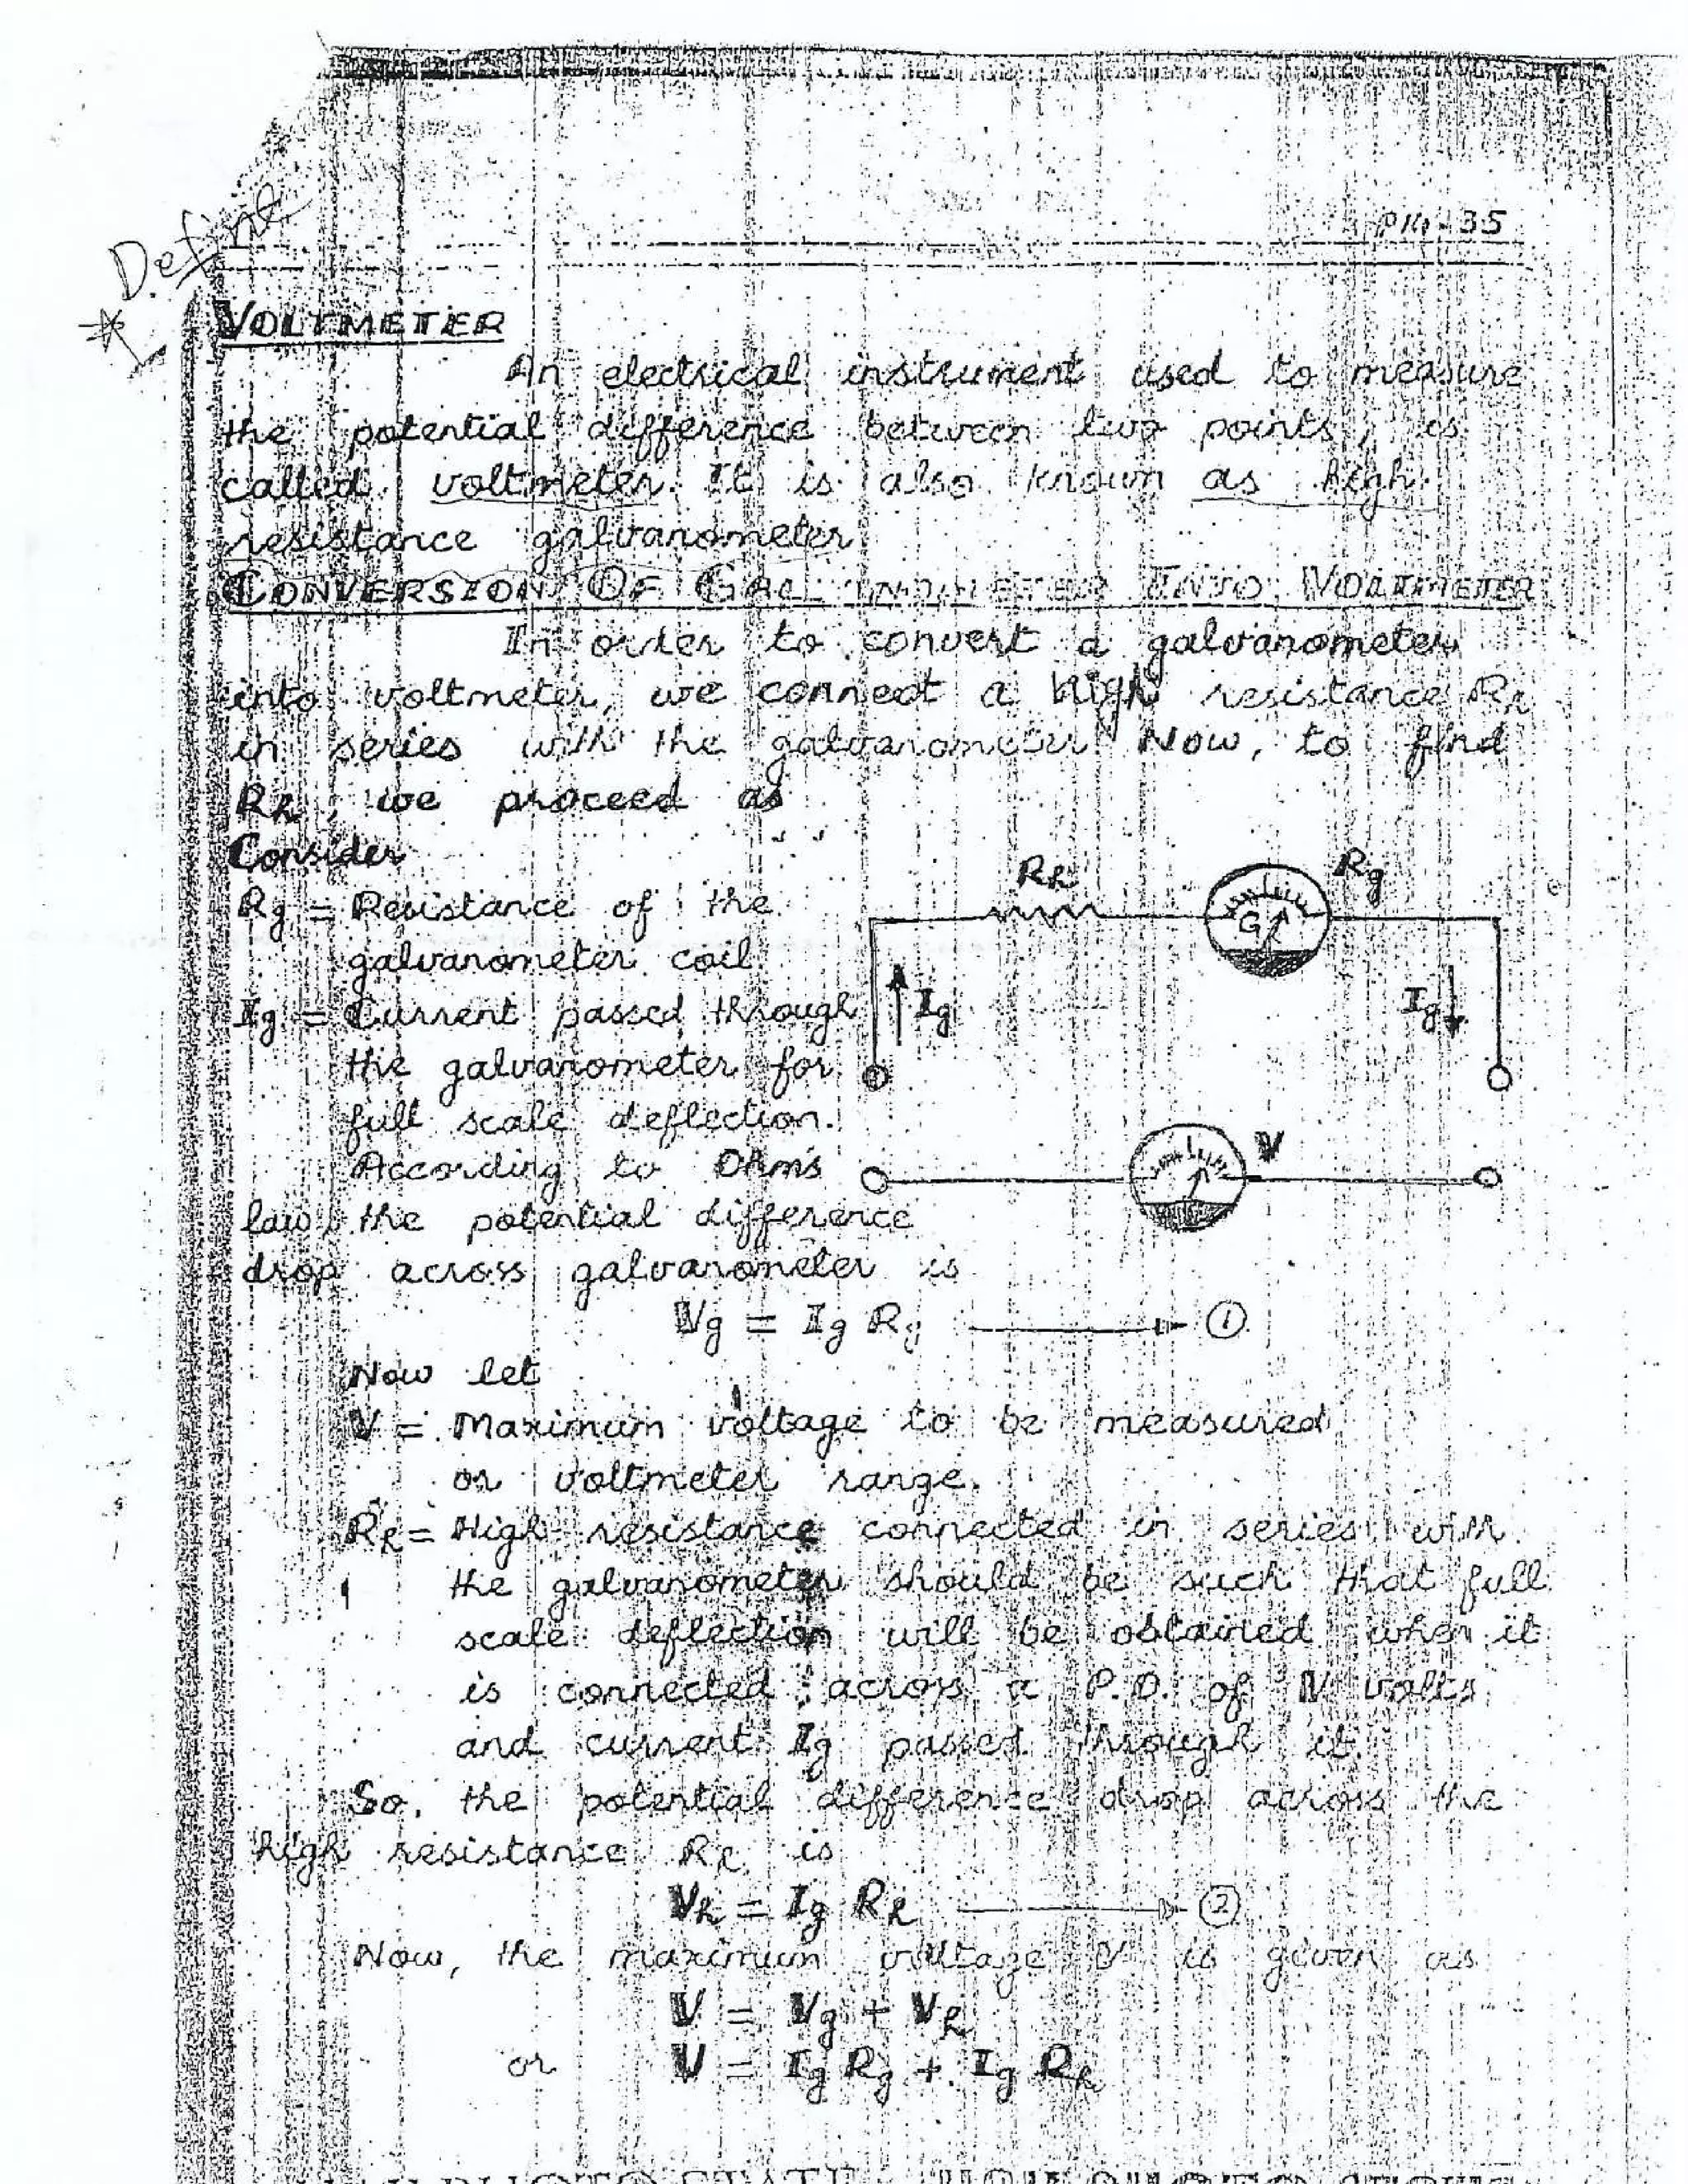 Define
35
VOLTMETER
An electrical instrument used to measure
the potential difference between two points, is
called voltmeter. It is also known as high
resistance galvanometer
CONVERSION OF GALVANOMETER INTO VOLTMETER
In order to convert a galvanometer
into voltmeter, we connect a high resistance Rh
in series with the galvanometer. Now, to find
Rh, we proceed as
Consider
Rg = Resistance of the
galvanometer coil
Ig = Current passed through
the galvanometer for
full scale deflection.
According to Ohm's
law, the potential difference
drop across galvanometer is
Rh
Rg
G
Ig
Ig
V
Vg = Ig Rg → 1
Now let
V = Maximum voltage to be measured
or voltmeter range.
Rh = High resistance connected in series with
the galvanometer should be such that full
scale deflection will be obtained when it
is connected across a P.D. of V volts
and current Ig passed through it.
So, the potential difference drop across the
high resistance Rh is
Vh = Ig Rh → 2
Now, the maximum voltage V is given as
V = Vg + Vh
or V = Ig Rg + Ig Rh